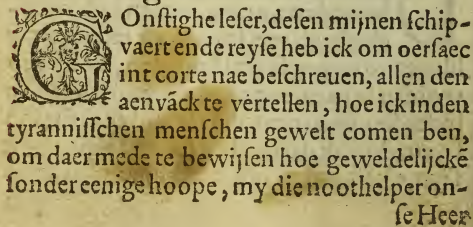 GOnſtighe leſer, deſen mijnen ſchip-
vaert ende reyſe heb ick om oerſaec
int corte nae beſchreuen, allen den
aenvāck te vertellen, hoe ick inden
tyranniſſchen menſchen gewelt comen ben,
om daer mede te bewijſen hoe geweldelijckē
ſonder eenige hoope, my die noothelper on-
ſe Heer